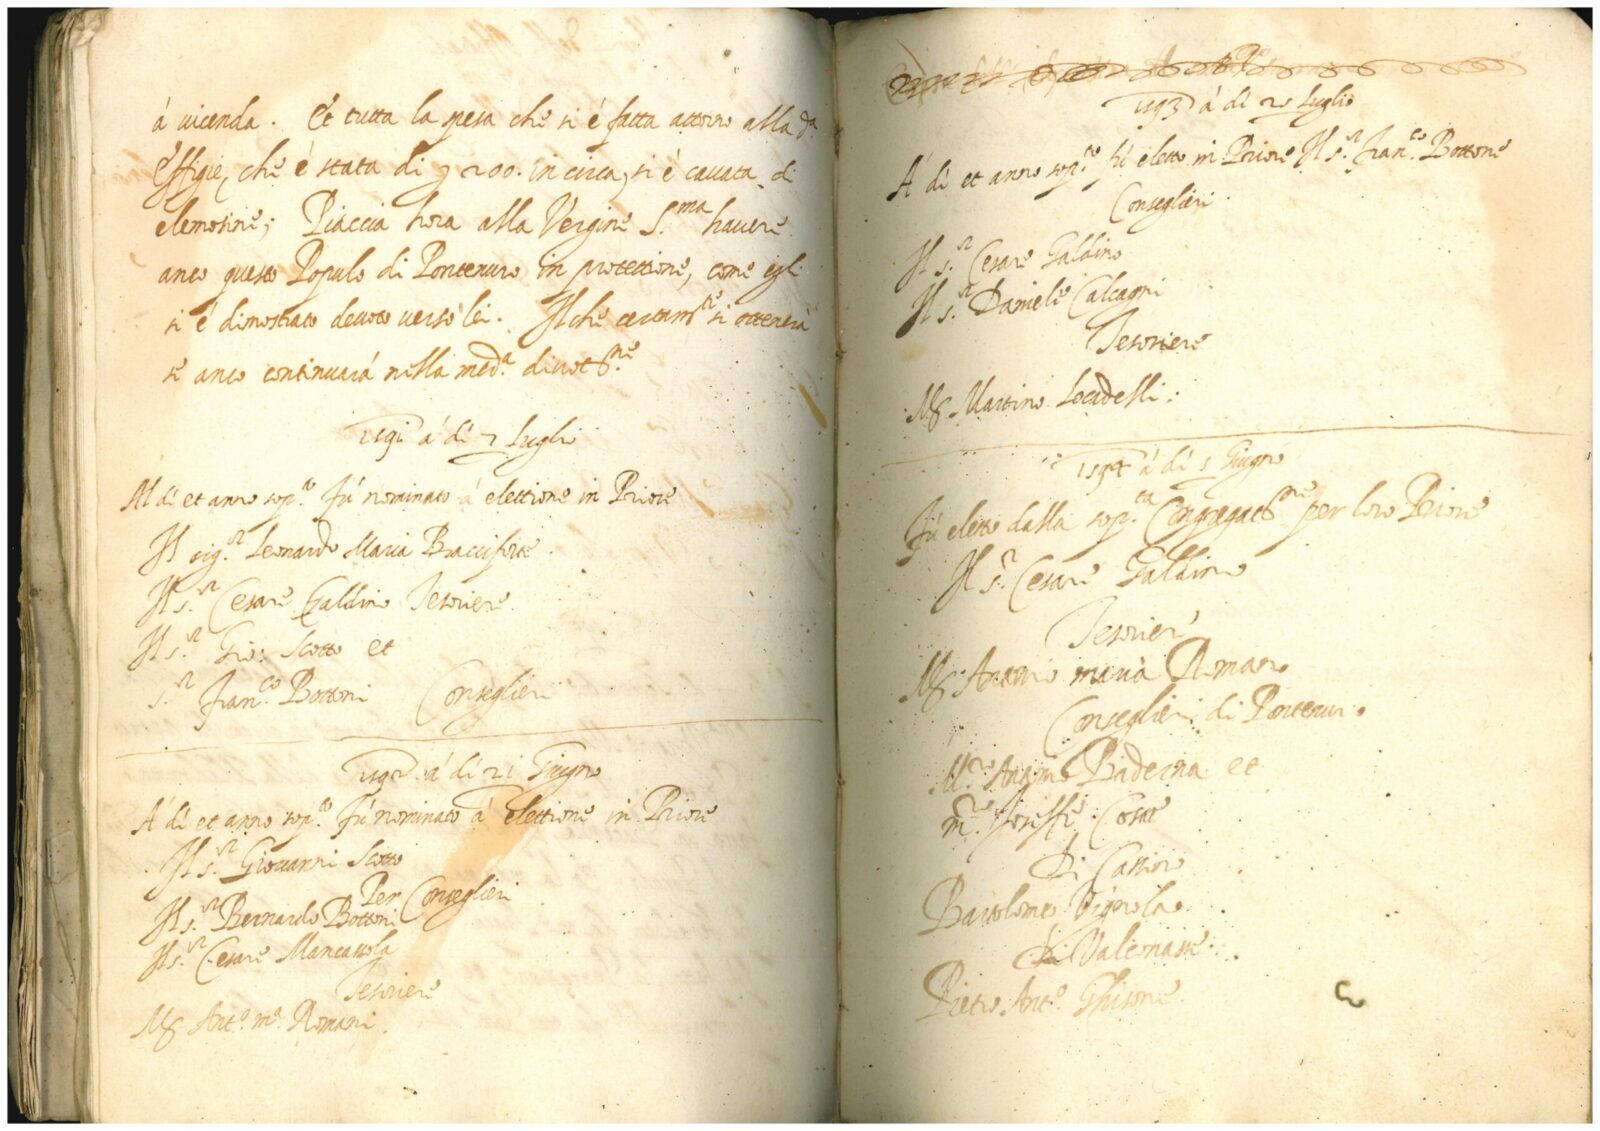 à vicenda. Et tutta la spesa che si è fatta attorno alla d.a
effigie, che è stata di 200. in circa, si è cavata di
elemosine; Piaccia hora alla Vergine S.ma havere
anco questo Popolo di Pontenuro in protettione, come egli
si è dimostrato devoto verso lei. Il che certam.te si ottenerà
se anco continuarà nella med.a divot.ne
à di Luglio
Al di et anno sop.to fù nominato à elettione in Priore
Il sig.r Leonardo Maria Bracciforte
Il s.r Cesare Galdino Tesoriere
Il s.r Gio: Scotto et
s.r Fran.co Bottoni Conseglieri
à di 21 Giugno
A di et anno sop.to fù nominato à elettione in Priore
Il s.r Giovanni Scotto
Per Conseglieri
Il s.r Bernardo Bottoni
Il s.r Cesare Mancassola
Tesoriere
Ms Ant.o m.a Romani.
1593 à di Luglio
A di et anno sop.to fù eletto in Priore Il s.r Fran.co Bottone
Conseglieri
Il s.r Cesare Galdino
Il s.r Daniele Calcagni
Tesoriere
Ms Martino Locadelli:
1594 à di Giugno
Fù eletto dalla sop.ta Congregat.ne per loro Priore
Il s.r Cesare Galdino
Tesorieri
Ms Antonio maria Romano
Conseglieri di Pontenuro
Baderna et
m.re
Di
Bartolomeo Vignola
Di
Pietro Ant.o Ghisone